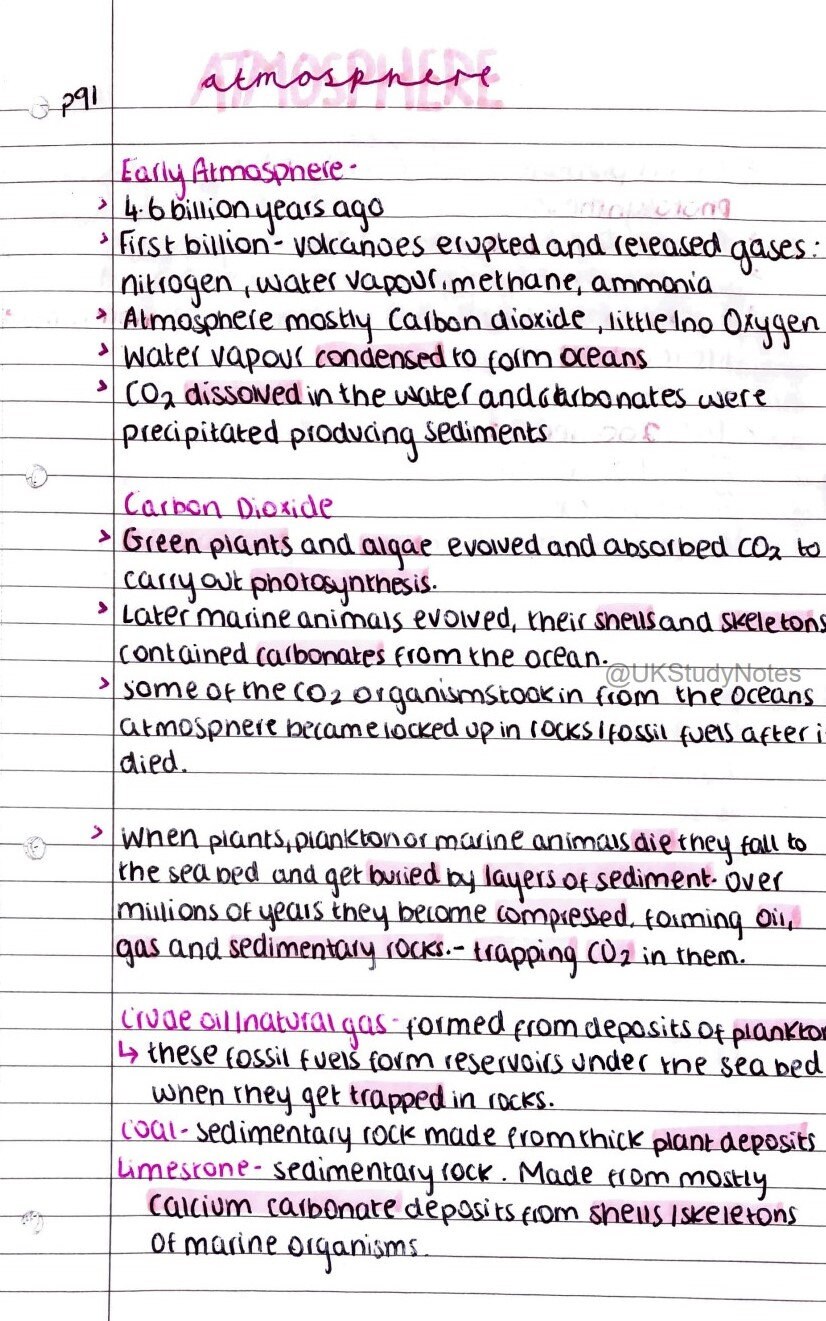 ATMOSPHERE
atmosphere
p91
Early Atmosphere -
> 4.6 billion years ago
> First billion - volcanoes erupted and released gases:
nitrogen, water vapour, methane, ammonia
> Atmosphere mostly Carbon dioxide, little/no Oxygen
> Water vapour condensed to form oceans
> CO₂ dissolved in the water and carbonates were
precipitated producing sediments
Carbon Dioxide
> Green plants and algae evolved and absorbed CO₂ to
carry out photosynthesis.
> Later marine animals evolved, their shells and skeletons
contained carbonates from the ocean.
@UKStudyNotes
> Some of the CO₂ organisms took in from the oceans
atmosphere became locked up in rocks/fossil fuels after i
died.
> When plants, plankton or marine animals die they fall to
the sea bed and get buried by layers of sediment. Over
millions of years they become compressed, forming oil,
gas and sedimentary rocks. - trapping CO₂ in them.
Crude oil/natural gas - formed from deposits of plankton
↳ these fossil fuels form reservoirs under the sea bed
when they get trapped in rocks.
Coal - sedimentary rock made from thick plant deposits
Limestone - sedimentary rock. Made from mostly
calcium carbonate deposits from shells/skeletons
of marine organisms.